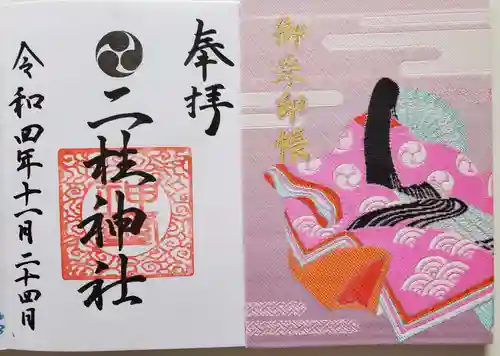 御朱印帳
奉拝
二柱神社
令和四年十一月二十四日